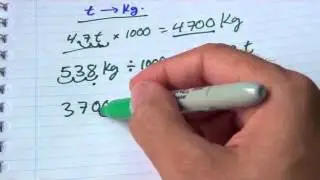 t → Kg.
4.7 t × 1000 = 4700 Kg
538 Kg ÷ 1000 t
370